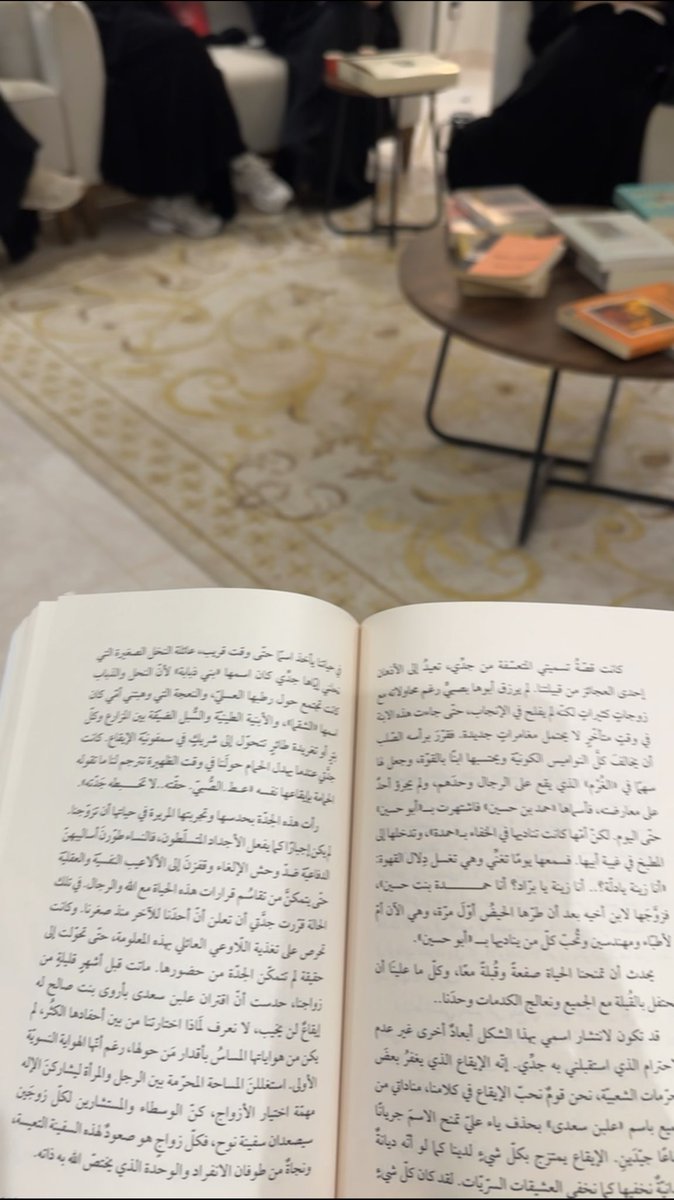 كانت قصّةُ تسميتي المتعسّفة من جدّي، تعيدُ إلى الأذهان
إحدى العجائز من قبيلتنا. لم يرزق أبوها بصبيٍّ رغم محاولاته مع
زوجاتٍ كثيراتٍ لكنّه لم يفلح في الإنجاب، حتّى جاءت هذه الابنة
في وقتٍ متأخّرٍ لا يحتمل مغامراتٍ جديدة. فقرّر برأسه الصّلب
أن يخالف كلَّ النواميس الكونيّة ويحتسبها ابنًا بالقوّة، وجعل لها
سهمًا في «الغُرْم» الذي يقع على الرجال وحدَهم، ولم يجرؤ أحدٌ
على معارضته، فأسماها «حمد بن حسين» فاشتهرت بـ«أبو حسين»
حتّى اليوم. لكنّ أمّها كانت تناديها في الخفاء بـ«حمدة»، وتدخلها إلى
المطبخ في غيبة أبيها. فسمعها يومًا تغنّي وهي تغسل دِلال القهوة:
«أنا زينة يادلّة؟.. أنا زينة يا برّاد؟ أنا حمـــــدة بنت حسين»،
فزوّجها لابن أخيه بعد أن طرّها الحيضُ أوّلَ مرّة، وهي الآن أمّ
لأطبّاء ومهندسين وتُحبّ كلّ من يناديها بـ«أبو حسين».
يحدث أن تمنحنا الحياة صفعةً وقُبلةً معًا، وكلّ ما علينا أن
نحتفل بالقُبلة مع الجميع ونعالج الكدمات وحدَنا..
قد تكون لانتشار اسمي بهذا الشكل أبعادٌ أخرى غير عدم
الاحترام الذي استقبلني به جدّي. إنّه الإيقاع الذي يغفرُ بعضَ
المحرّمات الشعبيّة، نحن قومٌ نحبّ الإيقاع في كلامنا، مناداتي من
الجميع باسم «علبن سعدى» بحذف ياء عليّ تمنح الاسمَ جريانًا
جيّدَين. الإيقاع يمتزج بكلّ شيءٍ لدينا كما لو أنّه ديانةٌ
نخفيها كما نخفي العشيقات السرّيّات. لقد كان كلّ شيءٍ
في حياتنا يأخذ اسمًا حتّى وقت قريب، عائلة النحل الصغيرة التي
نحلني إيّاها جدّي كان اسمها «بني ذبابة» لأنّ النحل والذباب
كانت تجتمع حول رطبها العسليّ، والنعجة التي وهبتني أمّي كان
اسمها «الشقما»، والأبنية الطينيّة والسُّبل الضيّقة بين المزارع وكلّ
بئرٍ أو تغريدة طائرٍ تتحوّل إلى شريكٍ في سمفونيّة الإيقاع. كانت
جدّتي عندما يهدل الحمام حولَنا في وقت الظهيرة تترجم لنا ما تقوله
الحمامة بإيقاعها نفسه «عـط.الصِّبي. حقّته..لا تخبطه جدّته».
رأت هذه الجدّة بحدسها وتجربتها المريرة في حياتها أن تزوّجنا.
لم يكن إجبارًا كما يفعل الأجداد المتسلّطون، فالنساء طوّرنَ أساليبهنّ
الدفاعيّة ضدّ وحش الإلغاء وقفزنَ إلى الألاعيب النفسيّة والعقليّة
حتّى يتمكنَّ من تقاسُم قرارات هذه الحياة مع الله والرجال. في تلك
الحالة قرّرت جدّتي أن تعلن أنّ أحدَنا للآخر منذ صغرنا. وكانت
تحرص على تغذية اللّاوعي العائلي بهذه المعلومة، حتّى تحوّلت إلى
حقيقة لم تتمكّن الجدّة من حضورها. ماتت قبل أشهرٍ قليلةٍ من
زواجنا، حدست أنّ اقتران علبن سعدى بأروى بنت صالح له
إيقاعٌ لن يخيب، لا نعرف لماذا اختارتنا من بين أحفادها الكثُر، لم
يكن من هواياتها المساسُ بأقدار مَن حولها، رغم أنّها الهواية النسويّة
الأولى. استغللنَ المساحة المحرّمة بين الرجل والمرأة ليشاركنَ الإله
مهمّة اختيار الأزواج، كنّ الوسطاء والمستشارين لكلّ زوجَين
سيصعدان سفينة نوح، فكلّ زواجٍ هو صعودٌ لهذه السفينة التعيسة،
ونجاةٌ من طوفان الانفراد والوحدة الذي يختصّ الله به ذاته.